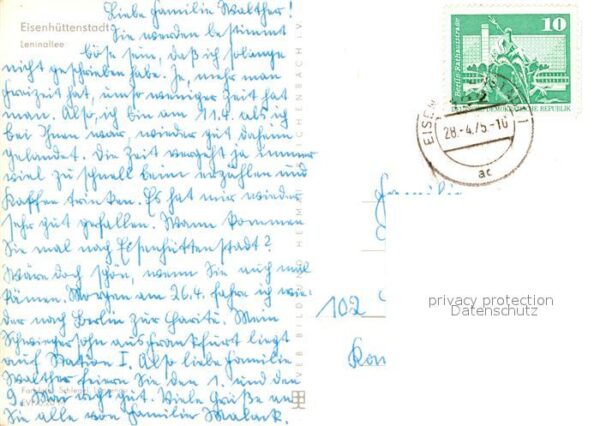 Eisenhüttenstadt
Leninallee
Liebe Familie Walther!
Sie werden bestimmt
böse sein, daß ich solange
nicht geschrieben habe. Je mehr man
Freizeit hat, um so weniger Zeit hat
man. Also, ich bin am 11.4. als ich
bei Ihnen war, wieder gut daheim
gelandet. Die Zeit vergeht ja immer
viel zu schnell beim erzählen und
Kaffee trinken. Es hat mir wieder
sehr gut gefallen. Wann kommen
Sie mal nach Eisenhüttenstadt?
Wäre doch schön, wenn Sie auch mal
kämen. Morgen am 26.4. fahre ich wie-
der nach Berlin zur Charité. Mein
Schwiegersohn aus Frankfurt liegt
auf Station I. Also liebe Familie
Walther feiern Sie den 1. und den
9. Mai recht gut. Viele Grüße an
Sie alle von Familie Malack.
VEB BILD UND HEIMAT REICHENBACH I. V.
10
Berlin, Rathausstraße
DEUTSCHE DEMOKRATISCHE REPUBLIK
28.-4.75.-10
ac
Familie
102
privacy protection
Datenschutz